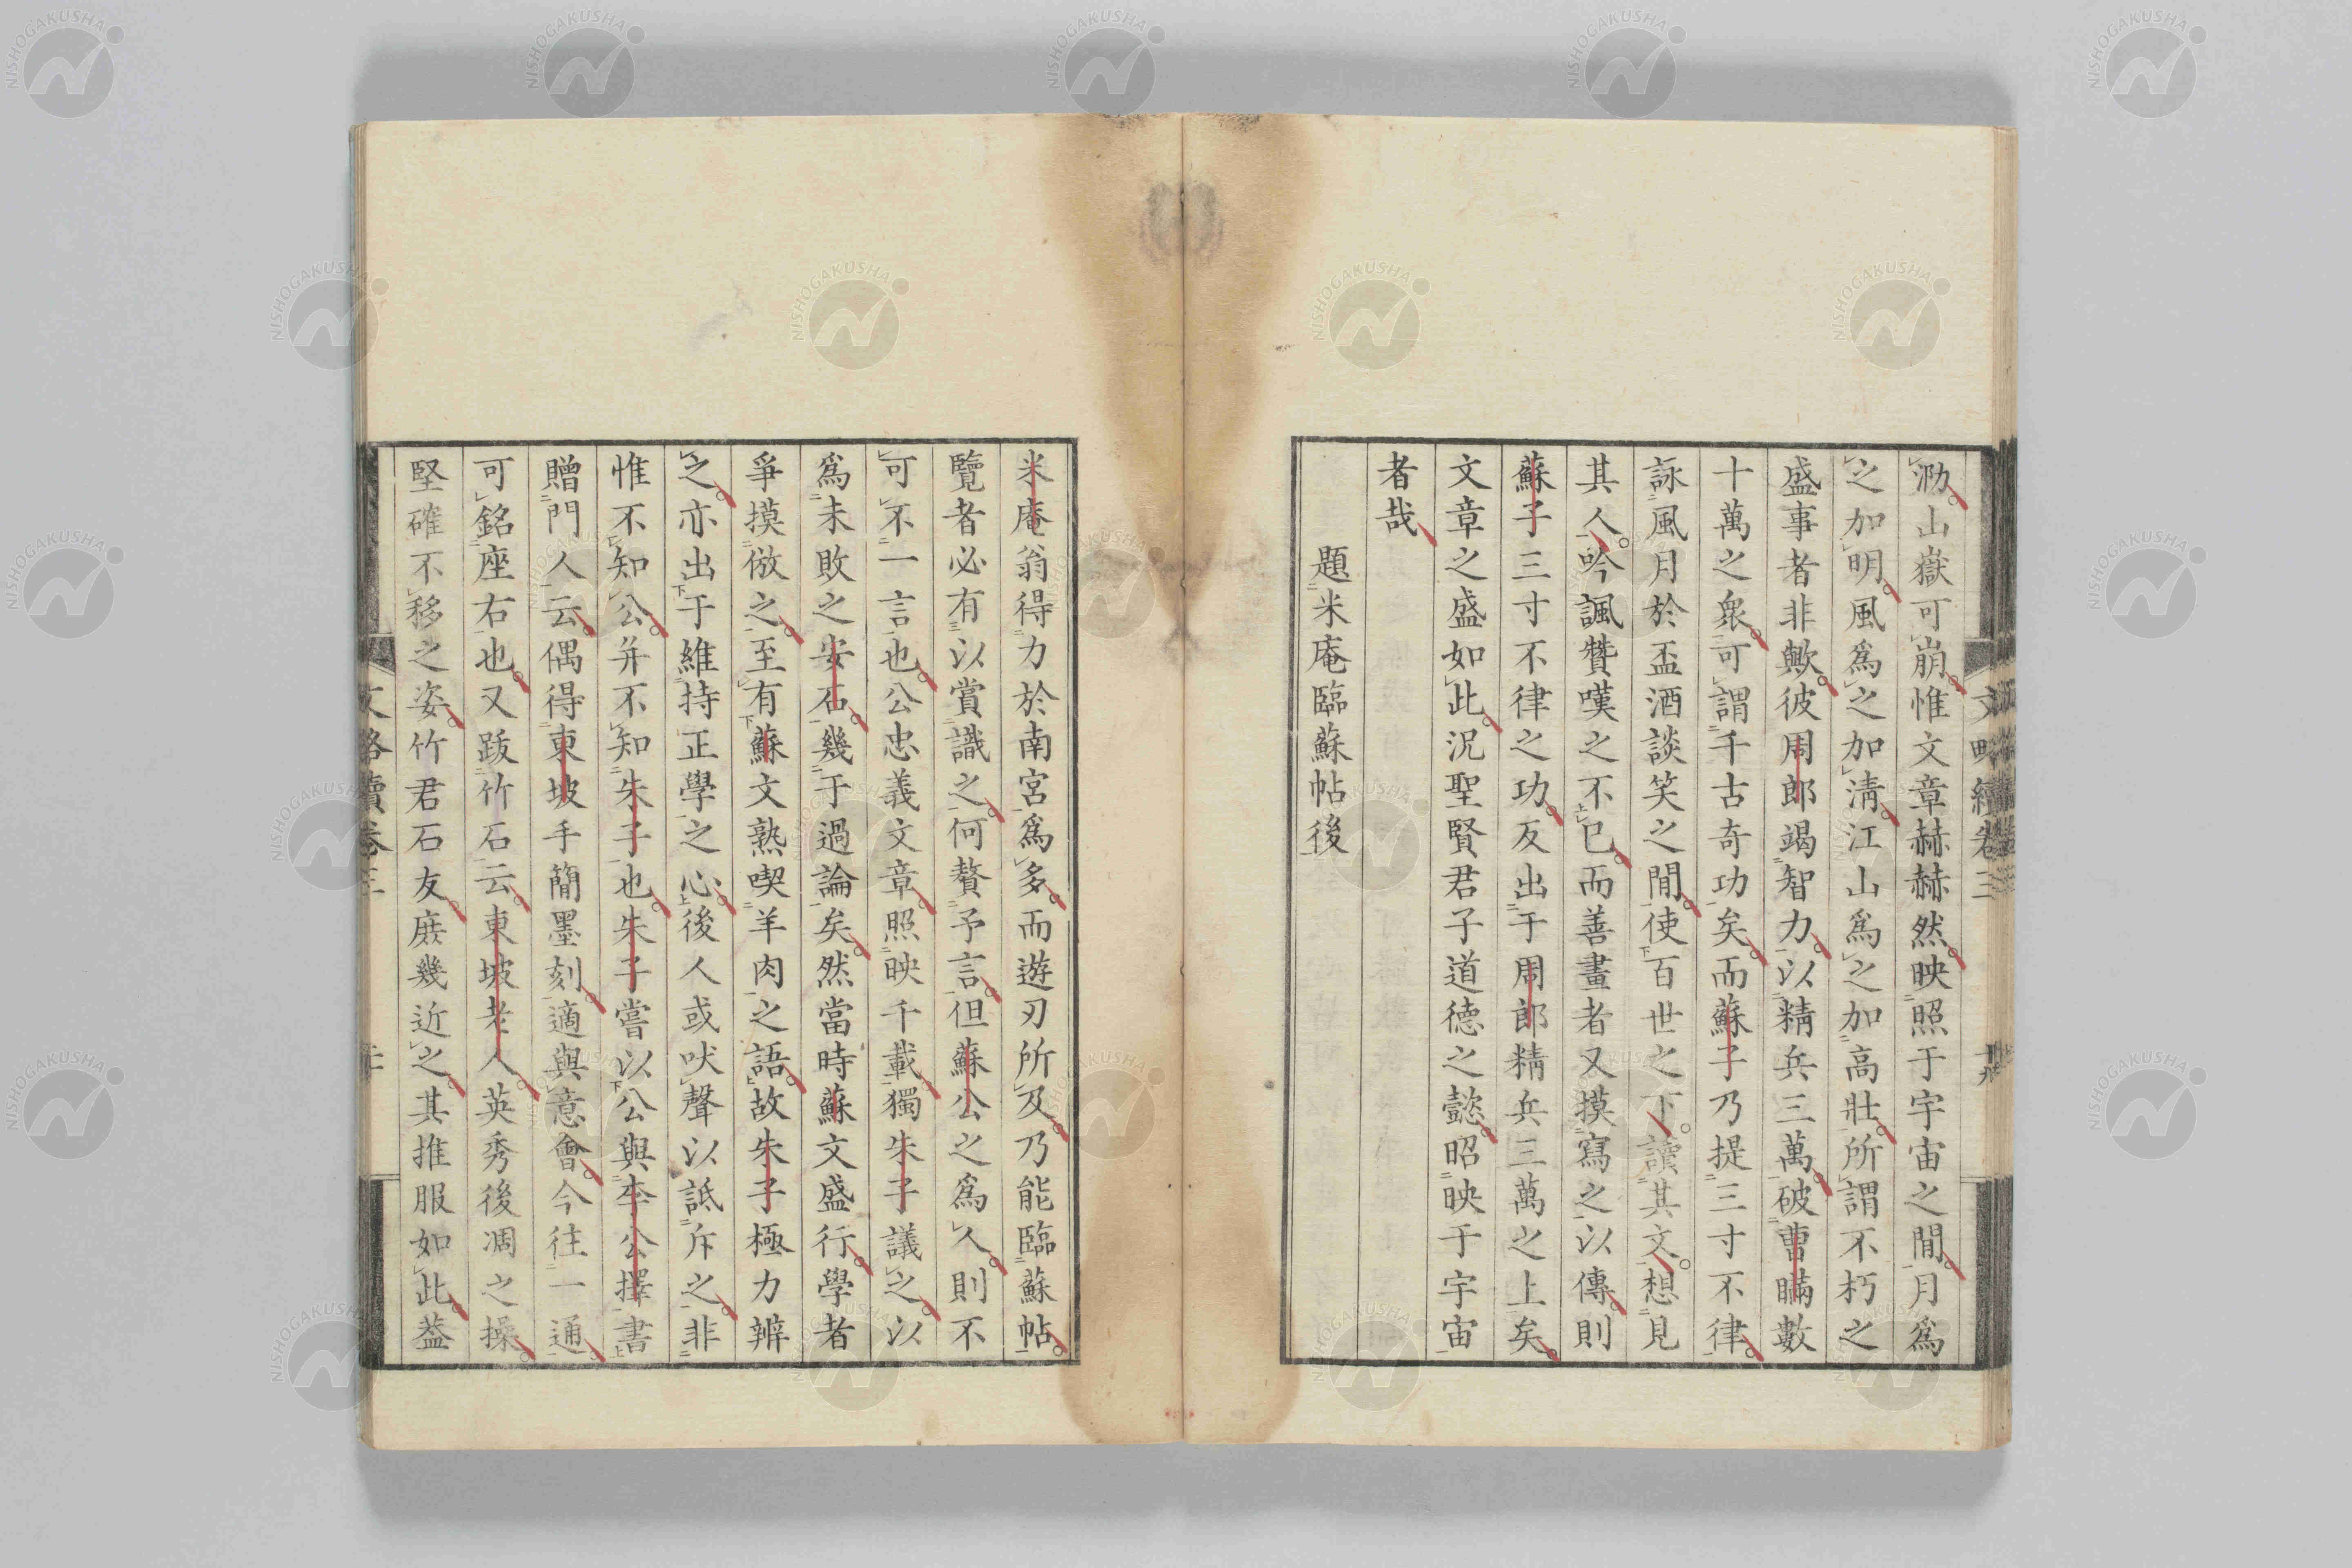 泐山嶽可崩惟文章赫赫然映照于宇宙之間月爲
之加明風爲之加淸江山爲之加高壯所謂不朽之
盛事者非歟彼周郎竭智力以精兵三萬破曹瞞數
十萬之衆可謂千古奇功矣而蘇子乃提三寸不律
詠風月於盃酒談笑之間使百世之下讀其文想見
其人吟諷贊嘆之不已而善畫者又摸寫之以傳則
蘇子三寸不律之功反出于周郎精兵三萬之上矣
文章之盛如此況聖賢君子道德之懿昭映于宇宙
者哉
題米庵臨蘇帖後
米庵翁得力於南宮爲多而遊刃所及乃能臨蘇帖
覽者必有以賞識之何贅予言但蘇公之爲人則不
可不一言也公忠義文章照映千載獨朱子議之以
爲未敗之安石幾于過論矣然當時蘇文盛行學者
爭摸倣之至有蘇文熟喫羊肉之語故朱子極力辨
之亦出于維持正學之心後人或吠聲以詆斥之非
惟不知公幷不知朱子也朱子嘗以公與李公擇書
贈門人云偶得東坡手簡墨刻適與意會今往一通
可銘座右也又跋竹石云東坡老人英秀後凋之操
堅確不移之姿竹君石友庶幾近之其推服如此葢
文略續卷三